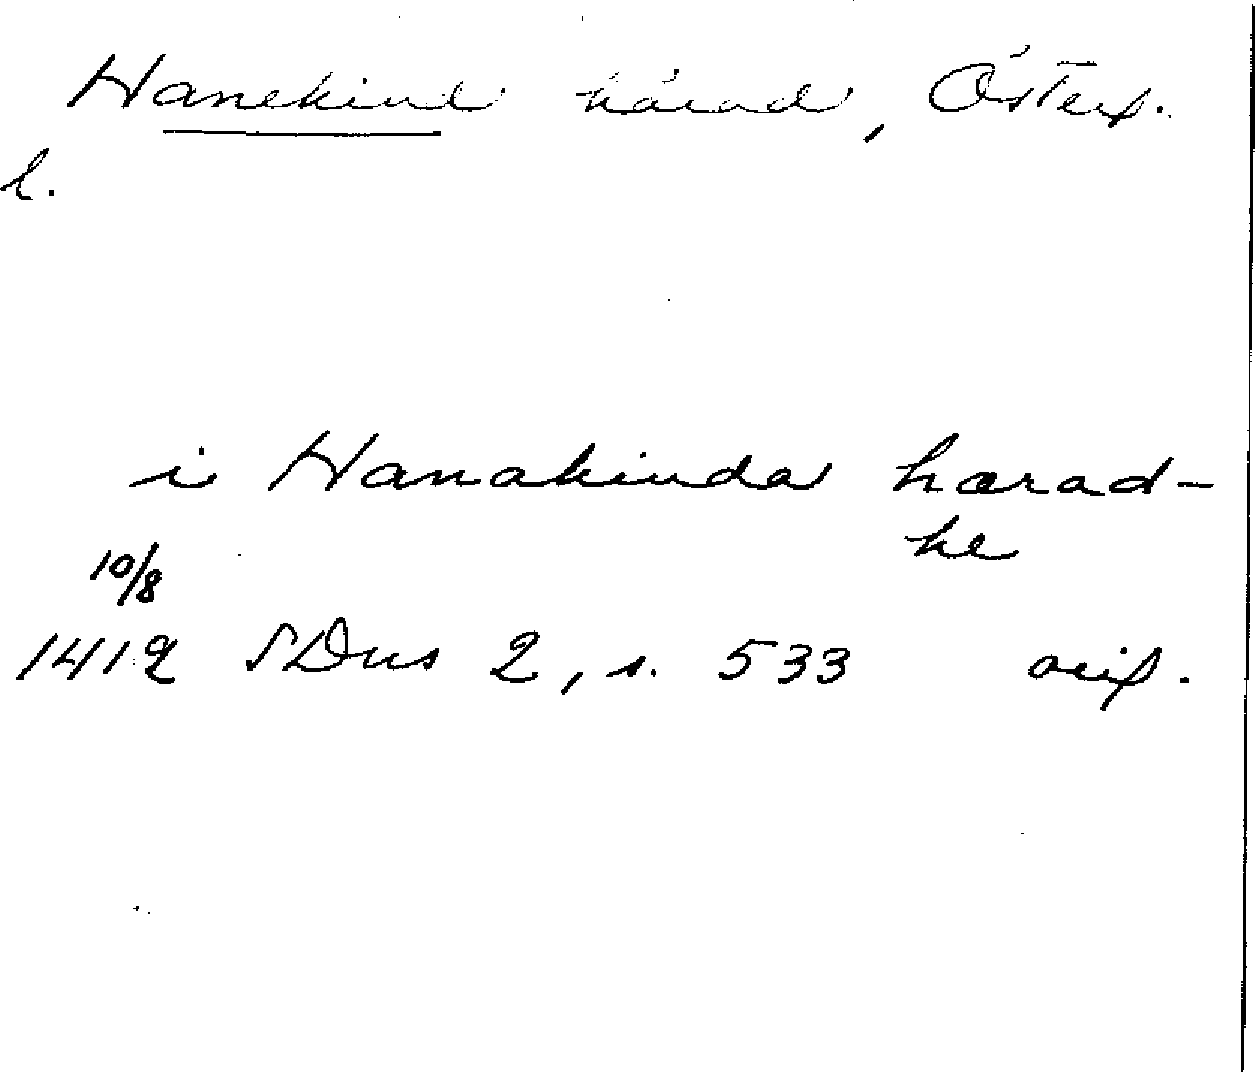 Hanekind härad, Österg.
l.
i Hanakinda hærad-
he
10/8
1412 SDns 2, s. 533 orig.